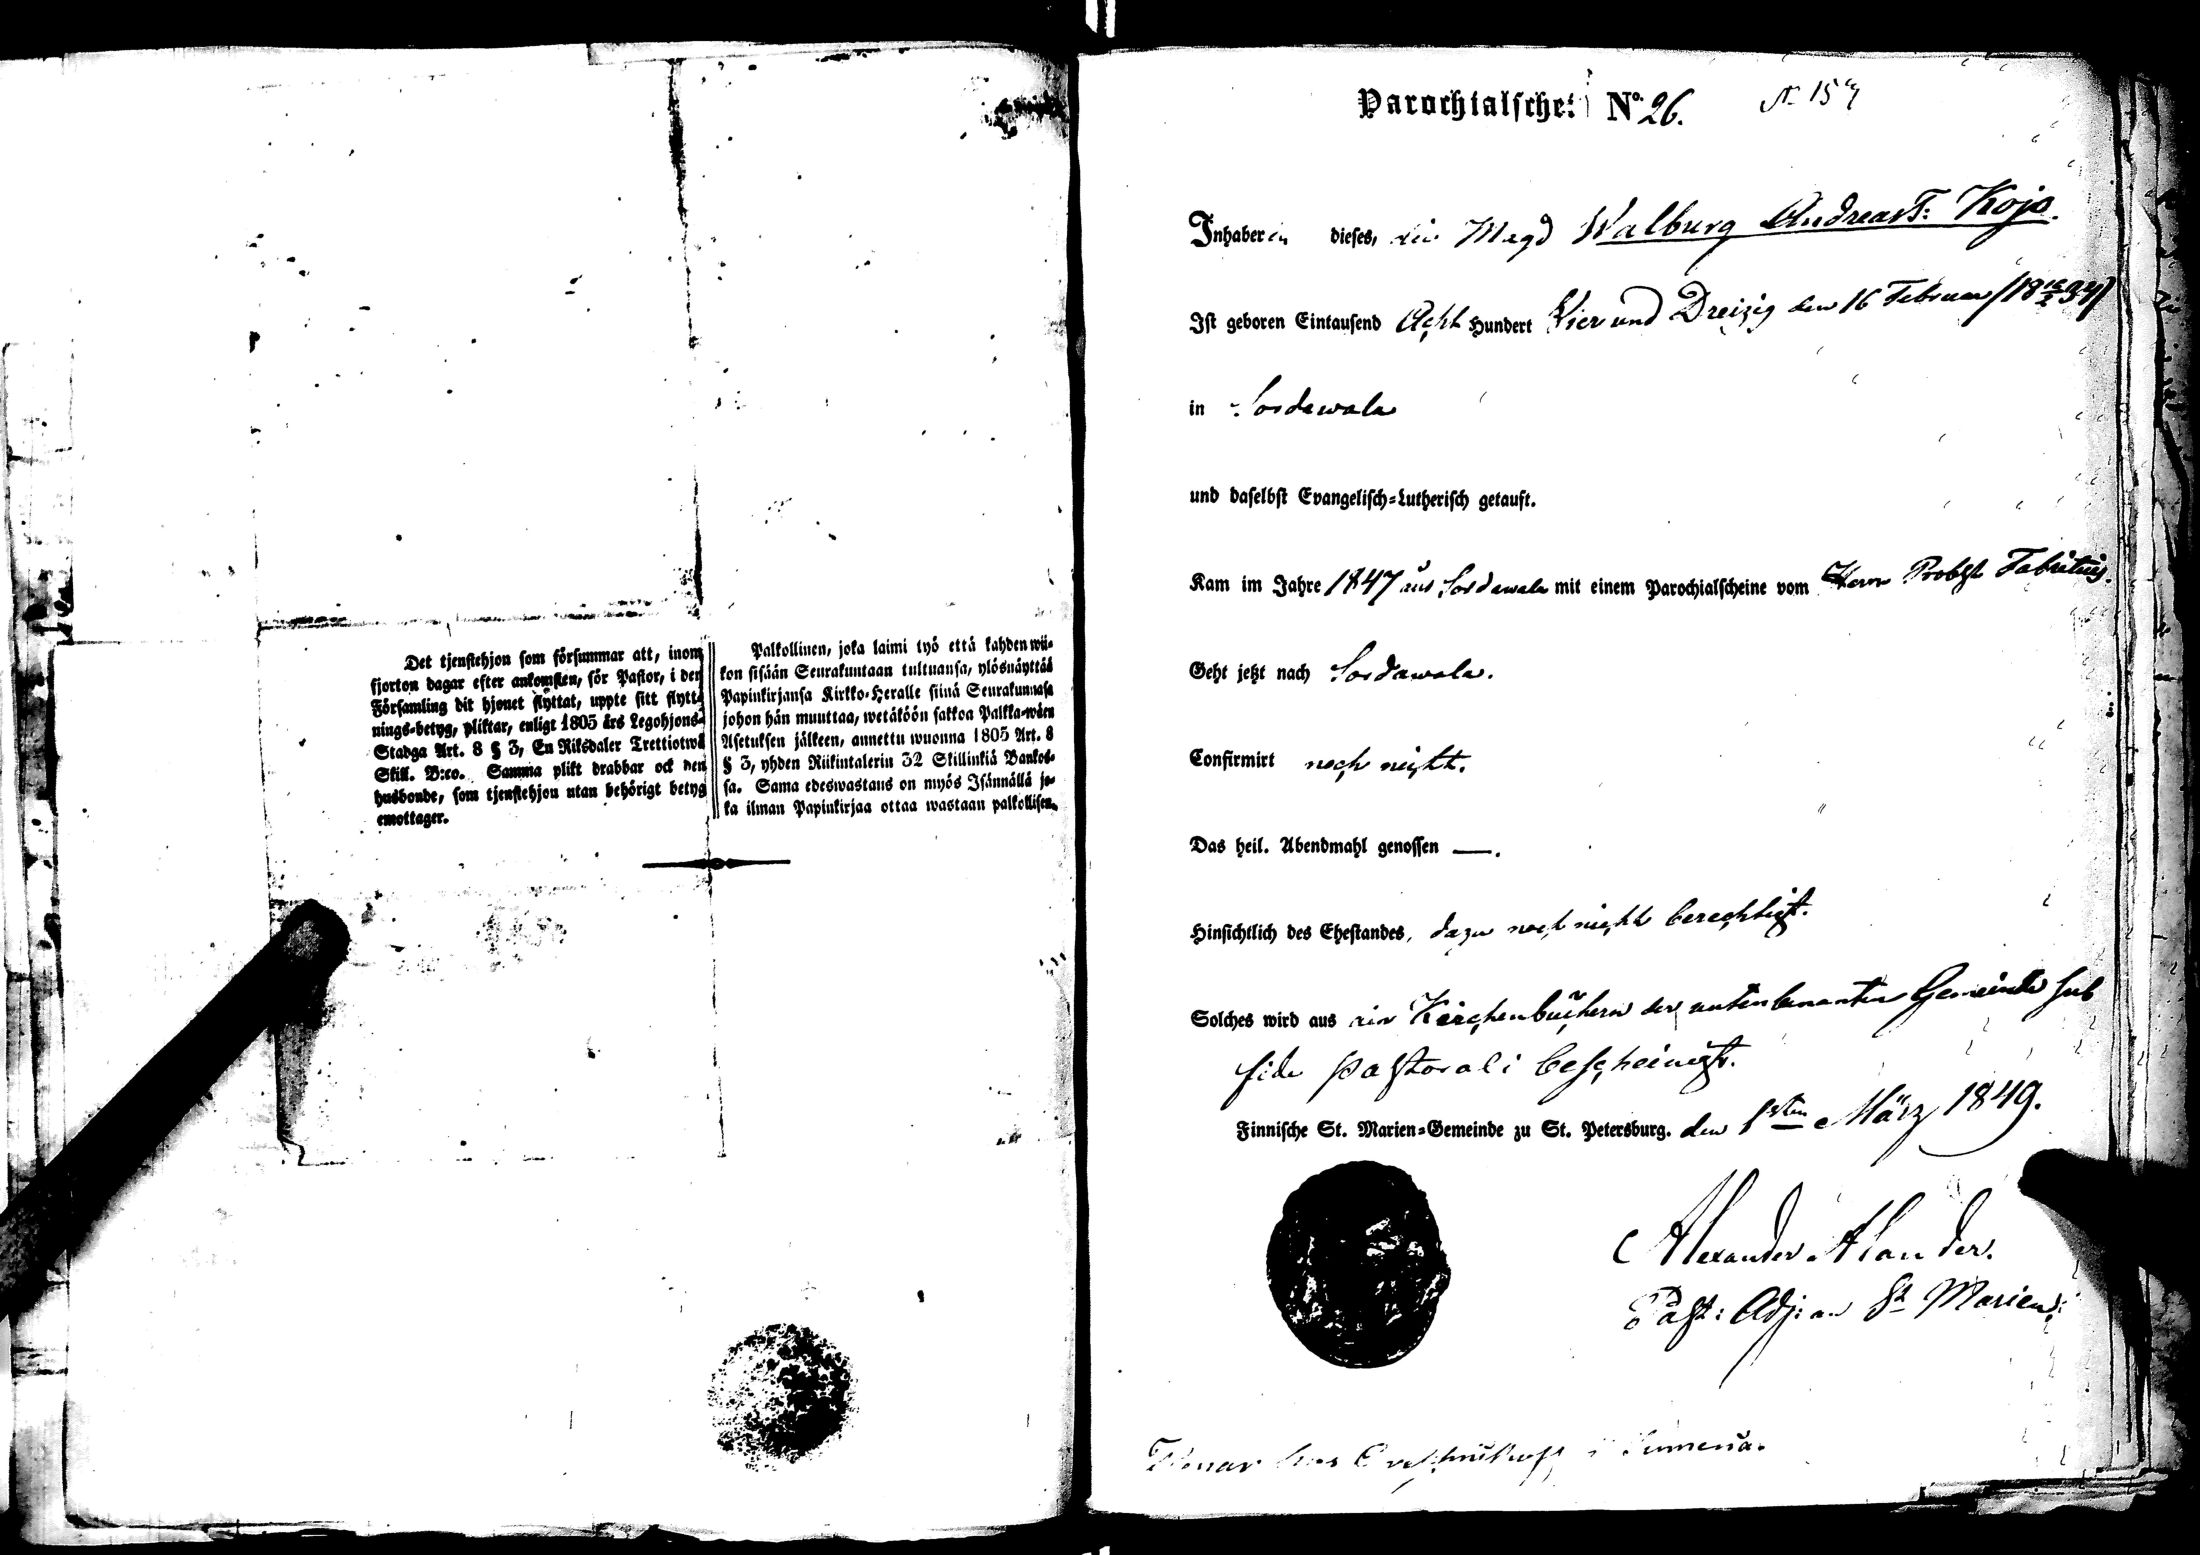 Det tjenstehjon som försummar att, inom
fjorton dagar efter ankomsten, för Pastor, i den
Församling dit hjonet flyttat, uppte sitt flytt-
nings-betyg, pliktar, enligt 1805 års Legohjons-
Stadga Art. 8 § 3, En Riksdaler Trettiotwå
Skill. B:co. Samma plikt drabbar ock den
husbonde, som tjenstehjon utan behörigt betyg
emottager.
Palkollinen, joka laimi tyō että kahden wii-
kon sisään Seurakuntaan tultuansa, ylösnäyttää
Papinkirjansa Kirkko-Heralle siinä Seurakunnasa
johon hän muuttaa, wetäköön sakkoa Palkka-wäen
Asetuksen jälkeen, annettu wuonna 1805 Art. 8
§ 3, yhden Riikintalerin 32 Skillinkiä Bankos-
sa. Sama edeswastaus on myös Isännällä jo-
ka ilman Papinkirjaa ottaa wastaan palkollisen.
Parochialschei No. 26. N 157
Inhaberin dieses, die Magd Walburg Andreast: Kojo.
Ist geboren Eintausend Acht Hundert Vier und Dreizig den 16 Februar (18 16/2 34)
in Sordawala
und daselbst Evangelisch-Lutherisch getauft.
Kam im Jahre 1847 aus Sordawala mit einem Parochialscheine vom Herrn Probst Fabritius.
Geht jetzt nach Sordawala.
Confirmirt noch nicht.
Das heil. Abendmahl genossen —.
Hinsichtlich des Ehestandes, dazu noch nicht berechtigt.
Solches wird aus den Kirchenbüchern der untenbenannten Gemeinde sub
fide pastorali bescheinigt.
Finnische St. Marien-Gemeinde zu St. Petersburg. den 1sten März 1849.
Alexander Alander.
Past: Adj: an St Marien.